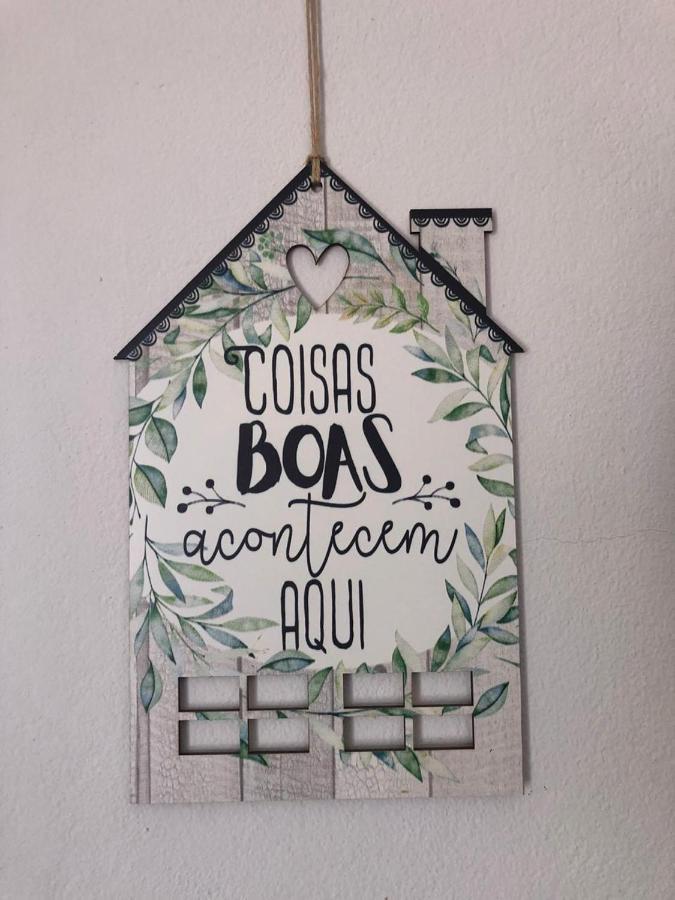 COISAS
BOAS
acontecem
AQUI